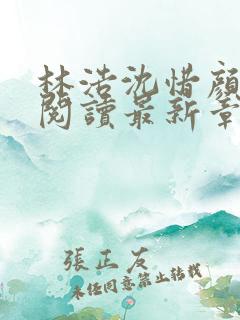 林浩沈惜顏
閱讀最新章
張正友
未經同意禁止轉載